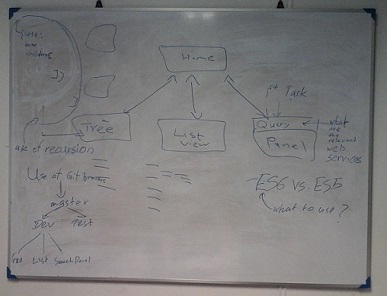 Home
Tree
List
View
1st Task
Query
Panel
what
are
the
relevant
web
services
use of recursion
Use of Git branches
master
Dev
Test
Tree List Search Panel
ES6 vs. ES5
what to use?